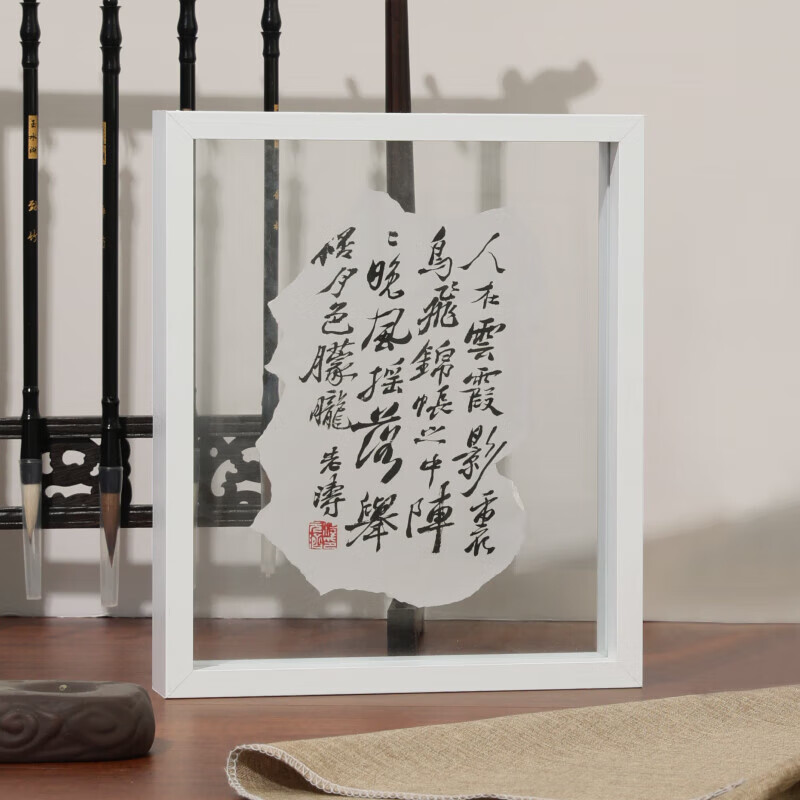 人在雲霞影裏
鳥飛錦帳之中陣
〻晚風搖落舉
夕色朦朧
濤